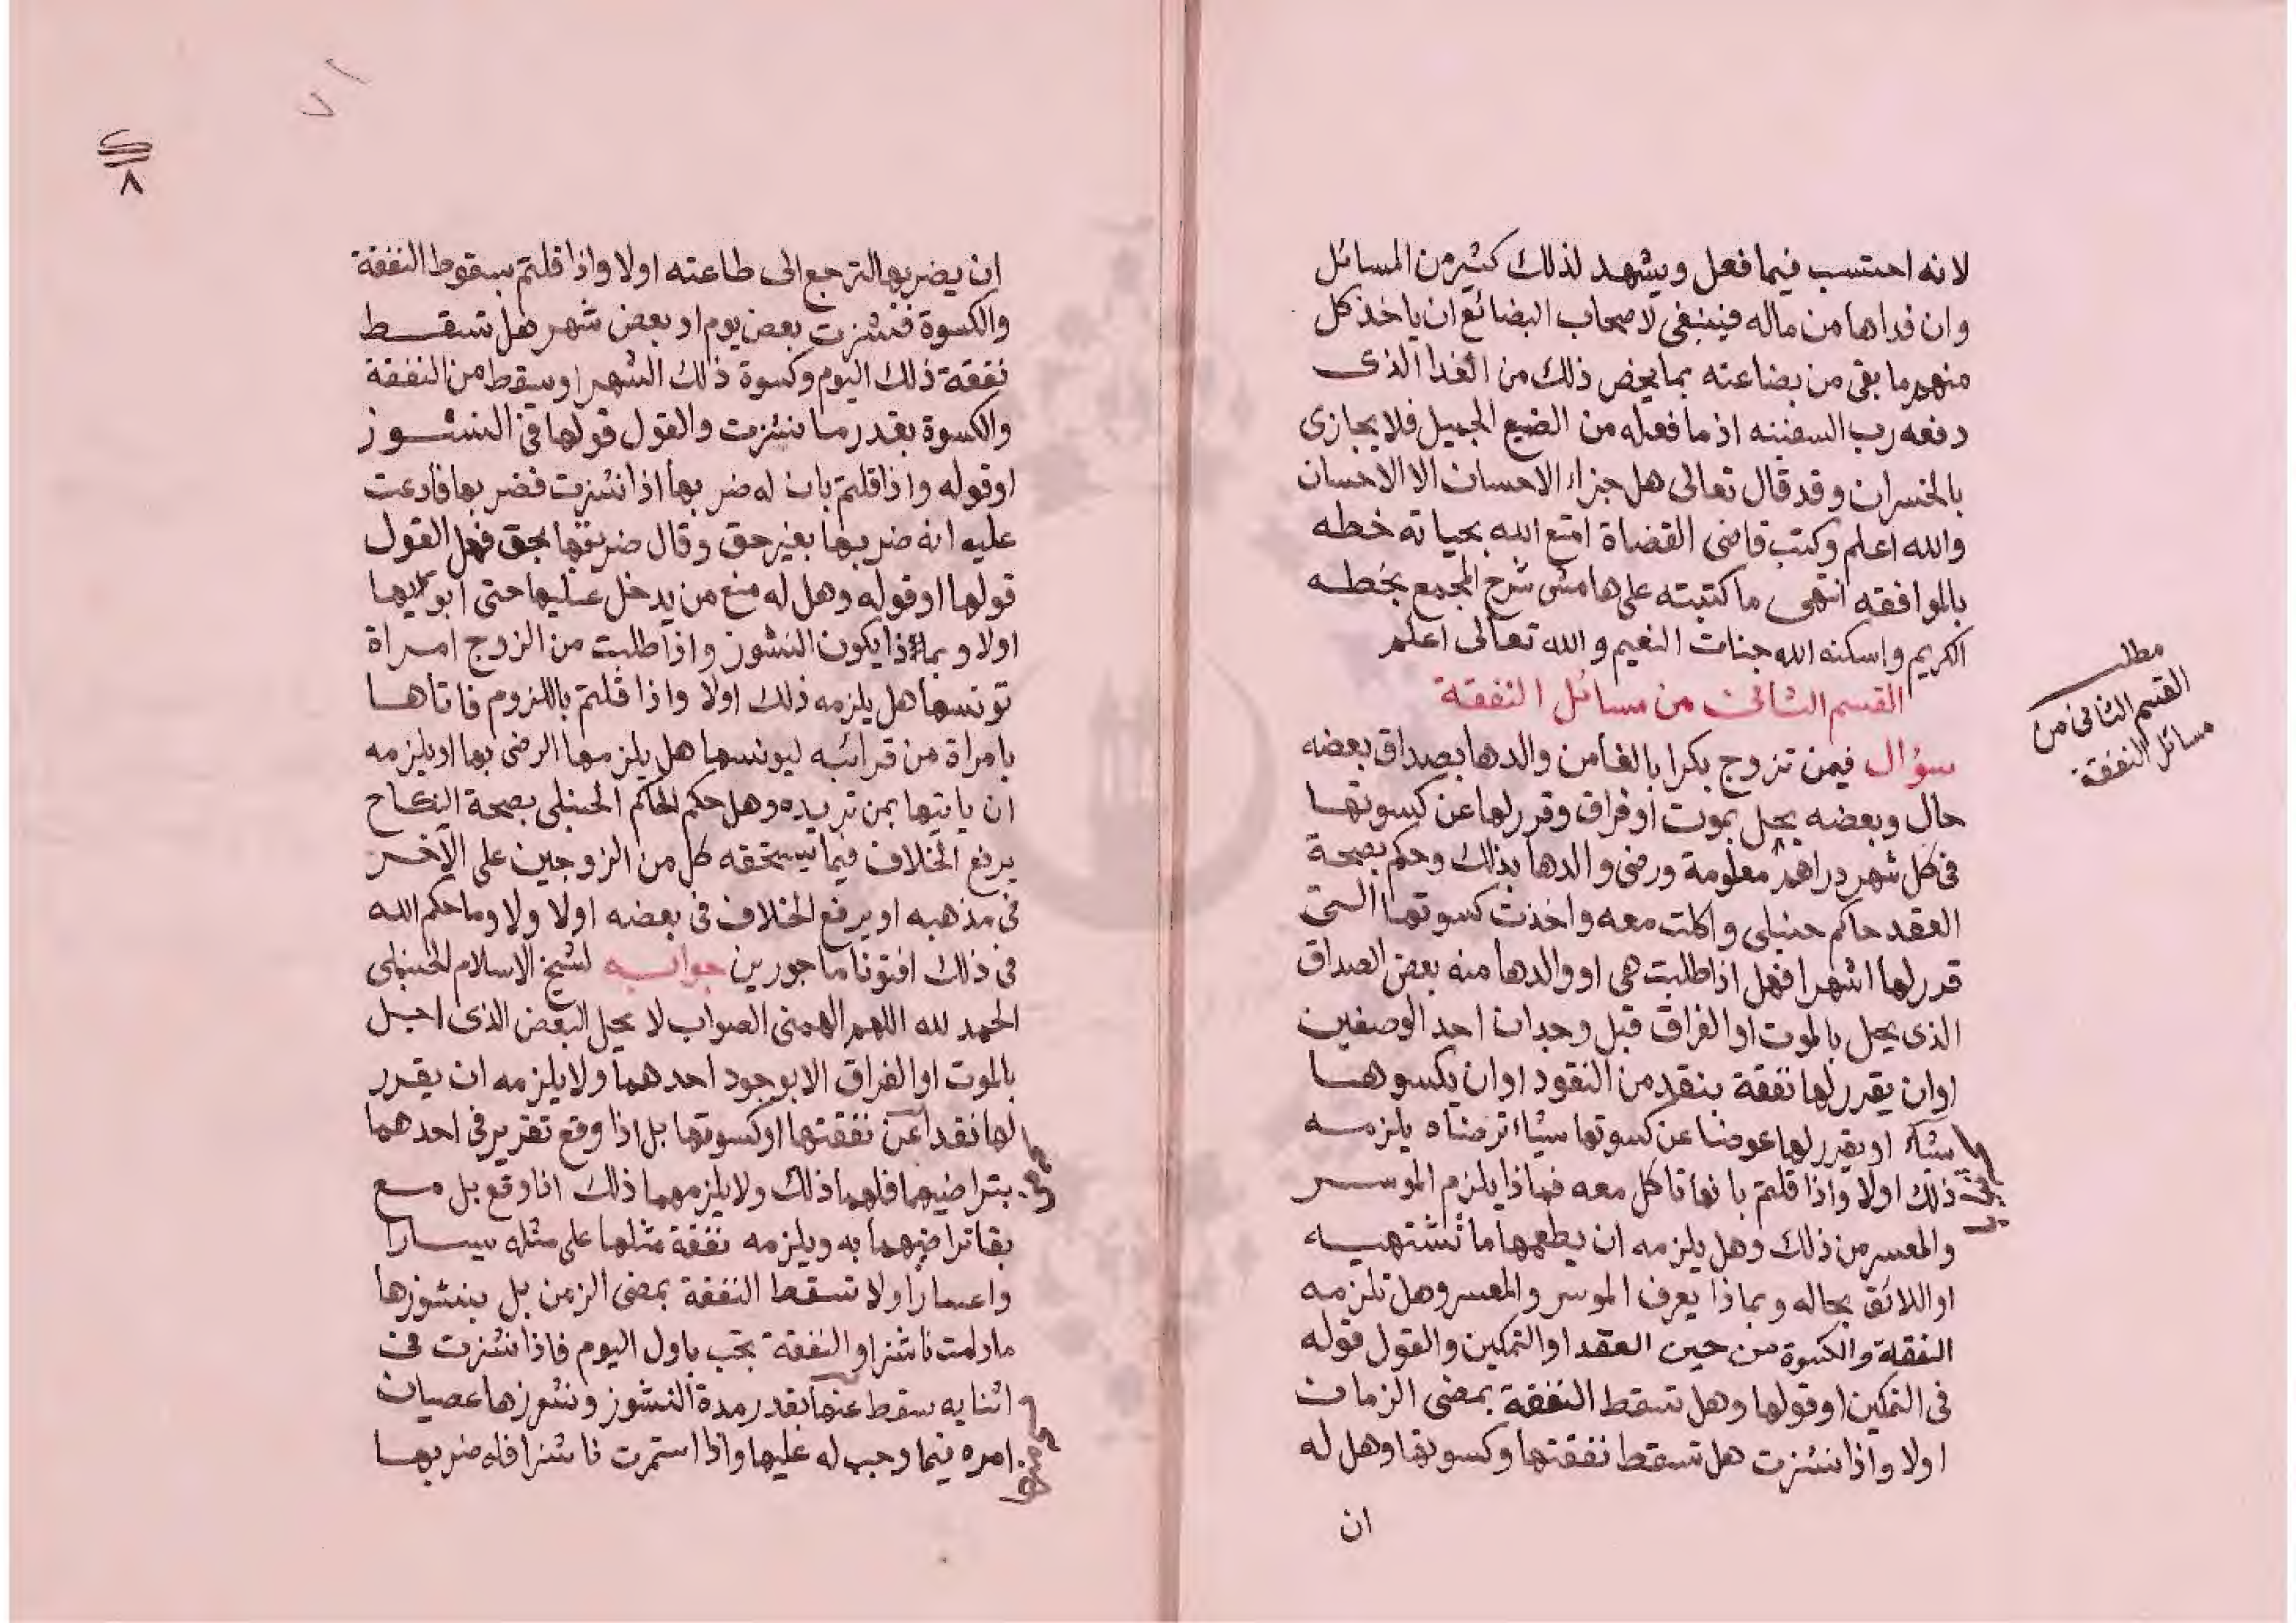 لانه احتسب فيما فعل ويشهد لذلك كثير من المسائل
وان فداها من ماله فينبغى لاصحاب البضائع ان ياخذ كل
منهم ما بقى من بضاعته بما يخص ذلك من الفدا الذى
دفعه رب السفينه اذ ما فعله من الضيع الجميل فلا يجازى
بالخسران وقد قال تعالى هل جزاء الاحسان الا الاحسان
والله اعلم وكتب قاضى القضاة امتع الله بحياته خطه
بالموافقه انتهى ما كتبته على هامش شرح المجمع بخطه
الكريم واسكنه الله جنات النعيم والله تعالى اعلم
القسم الثانى من مسائل النفقة
مطلب
القسم الثانى من
مسائل النفقة
سؤال فيمن تزوج بكرا بالغا من والدها بصداق بعضه
حال وبعضه يحل بموت او فراق وقرر لها عن كسوتها
فى كل شهر دراهم معلومة ورضى والدها بذلك وحكم بصحة
العقد حاكم حنبلى واكلت معه واخذت كسوتها التى
قدر لها اشهرا فهل اذا طلبت هى او والدها منه بعض الصداق
الذى يحل بالموت او الفراق قبل وجدان احد الوصفين
اوان يقرر لها نفقة بنقد من النقود او ان يكسوها
شيئا او يقرر لها عوضا عن كسوتها شياء ترضاه يلزمه
ذلك اولا واذا قلتم بانها تاكل معه فماذا يلزم الموسر
والمعسر من ذلك وهل يلزمه ان يطعمها ما تشتهيه
او اللائق بحاله وبماذا يعرف الموسر والمعسر وهل تلزمه
النفقة والكسوة من حين العقد او التمكين والقول قوله
فى التمكين او قولها وهل تسقط النفقة بمضى الزمان
اولا واذا نشزت هل تسقط نفقتها وكسوتها وهل له
ان
٧١
٨
ان يضربها لترجع الى طاعته اولا واذا قلتم بسقوط النفقة
والكسوة فنشزت بعض يوم او بعض شهر هل تسقط
نفقة ذلك اليوم وكسوة ذلك الشهر او يسقط من النفقة
والكسوة بقدر ما نشزت والقول قولها فى النشوز
او قوله واذا قلتم بان له ضربها اذا نشزت فضربها فادعت
عليه انه ضربها بغير حق وقال ضربتها بحق فهل القول
قولها او قوله وهل له منع من يدخل عليها حتى ابويها
اولا وبماذا يكون النشوز واذا طلبت من الزوج امراة
تونسها هل يلزمه ذلك اولا واذا قلتم باللزوم فاتاها
بامراة من قرائبه ليونسها هل يلزمها الرضى بها او يلزمه
ان ياتيها بمن تريده وهل حكم الحاكم الحنبلى بصحة النكاح
يرفع الخلاف فيما يستحقه كل من الزوجين على الآخر
فى مذهبه او يرفع الخلاف فى بعضه اولا ولا وما حكم الله
فى ذلك افتونا ماجورين جوابه لشيخ الاسلام الحنبلى
الحمد لله اللهم الهمنى الصواب لا يحل البعض الذى اجل
بالموت او الفراق الا بوجود احدهما ولا يلزمه ان يقرر
لها نقدا عن نفقتها او كسوتها بل اذا وقع تقرير فى احدهما
بتراضيهما فلهما ذلك ولا يلزمهما ذلك اذا وقع بل مع
بقا تراضيهما به ويلزمه نفقة مثلها على مثله يسارا
واعسارا ولا تسقط النفقة بمضى الزمن بل بنشوزها
مادامت ناشزا والنفقة تجب باول اليوم فاذا نشزت فى
اثنايه سقط عنها بقدر مدة النشوز ونشوزها عصيان
امره فيما وجب له عليها واذا استمرت ناشزا فله ضربها